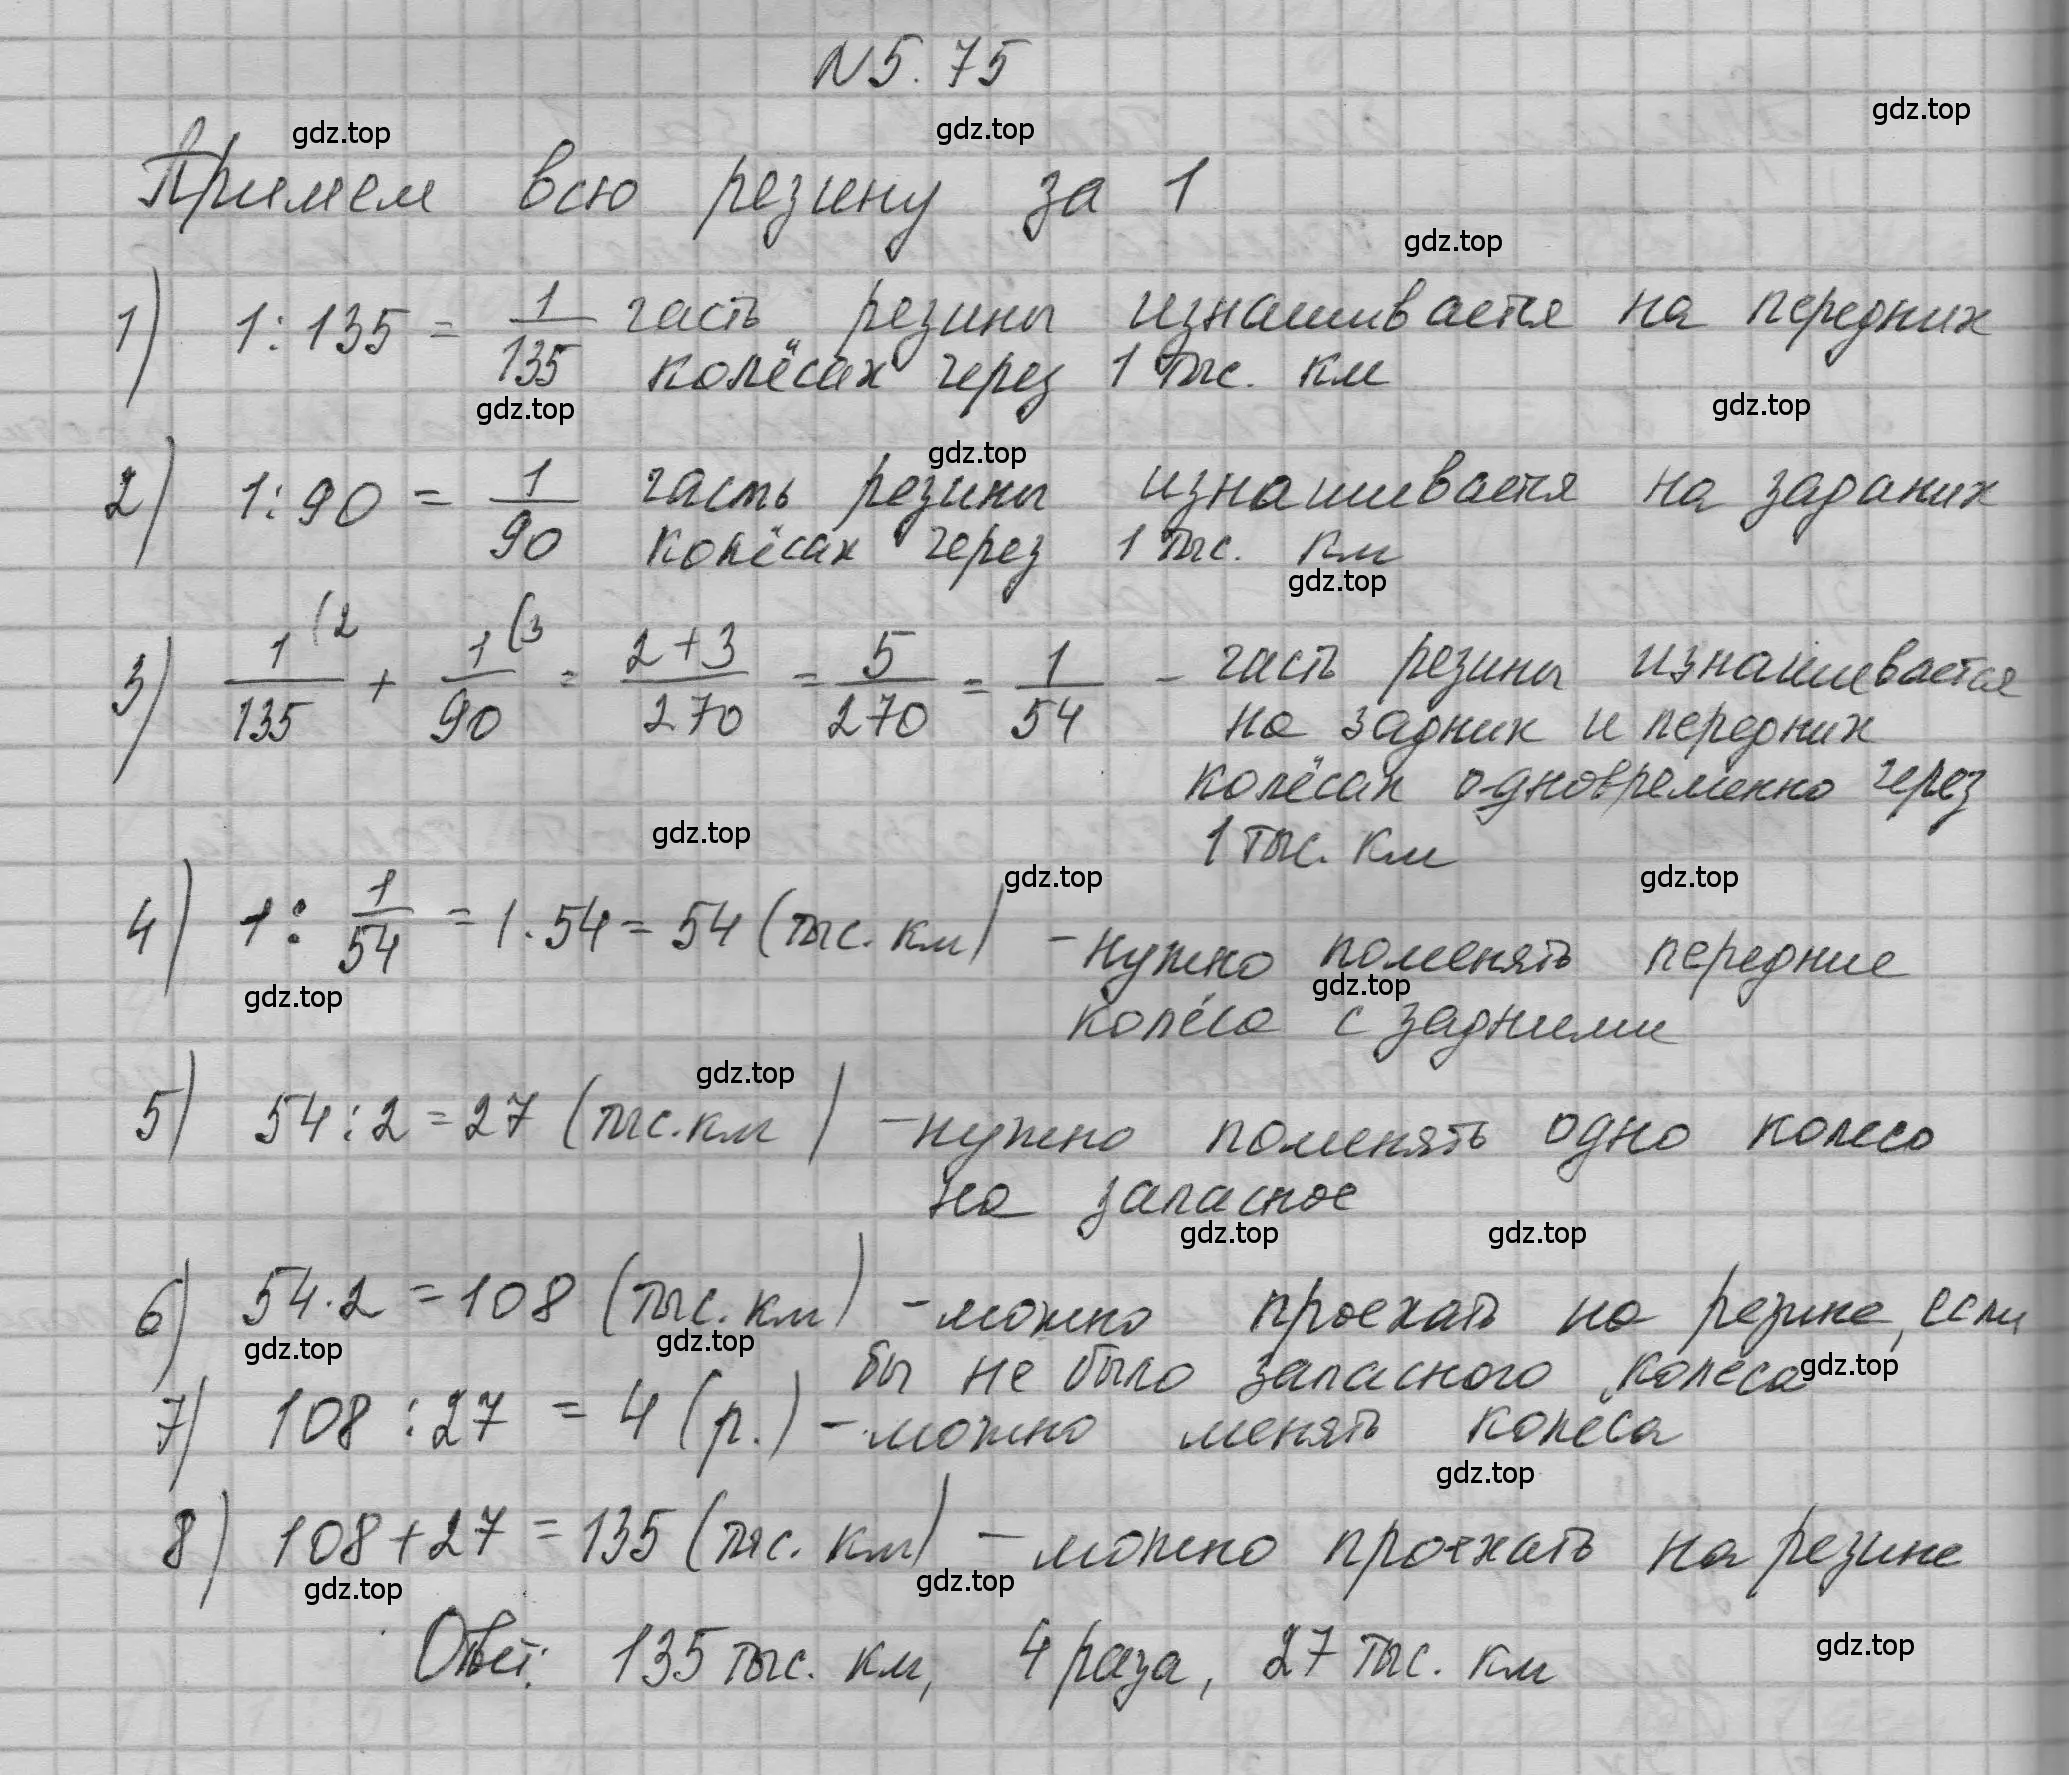 N5.75
gdz.top
gdz.top gdz.top
Примем всю резину за 1
gdz.top
1) 1:135 = 1/135 часть резины изнашивается на передних
колёсах через 1 тыс. км
gdz.top gdz.top
gdz.top
2) 1:90 = 1/90 часть резины изнашивается на заданих
колёсах через 1 тыс. км
gdz.top
3) 1/135 (2 + 1/90 (3 = 2+3/270 = 5/270 = 1/54 - часть резины изнашивается
на задних и передних
колёсах одновременно через
gdz.top
1 тыс. км
gdz.top gdz.top
4) 1 : 1/54 = 1·54 = 54 (тыс. км) - нужно поменять передние
gdz.top gdz.top
колёса с задними
gdz.top
5) 54:2 = 27 (тыс. км) - нужно поменять одно колесо
на запасное
gdz.top gdz.top
6) 54·2 = 108 (тыс. км) - можно проехать на резине, если
gdz.top gdz.top
бы не было запасного колёса
gdz.top
7) 108 : 27 = 4 (р.) - можно менять колёса
gdz.top
8) 108+27 = 135 (тыс. км) - можно проехать на резине
gdz.top gdz.top
Ответ: 135 тыс. км, 4 раза, 27 тыс. км
gdz.top